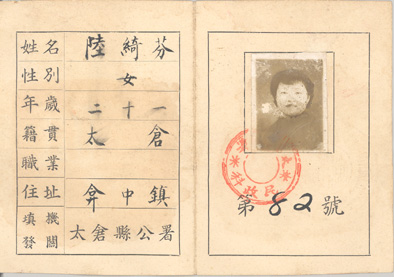 姓名 陸綺芬
性別 女
年歲 二十一
籍貫 太倉
職業
住址 弇中鎮
填發機關 太倉縣公署
民政科
第82號